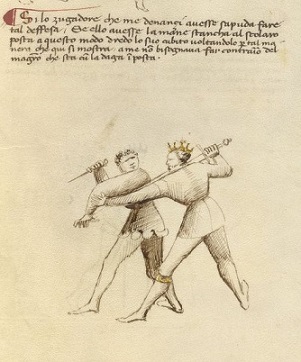 Si lo zugadore che me denanci avesse sapuda fare
tal deffesa, Se ello avesse la mane stancha al scolaro
posta a questo modo dredo lo suo cubito voltandolo p tal ma
nera che qui si mostra, a me nō bisognava far contrario del
magro che sta cū la daga ī posta.